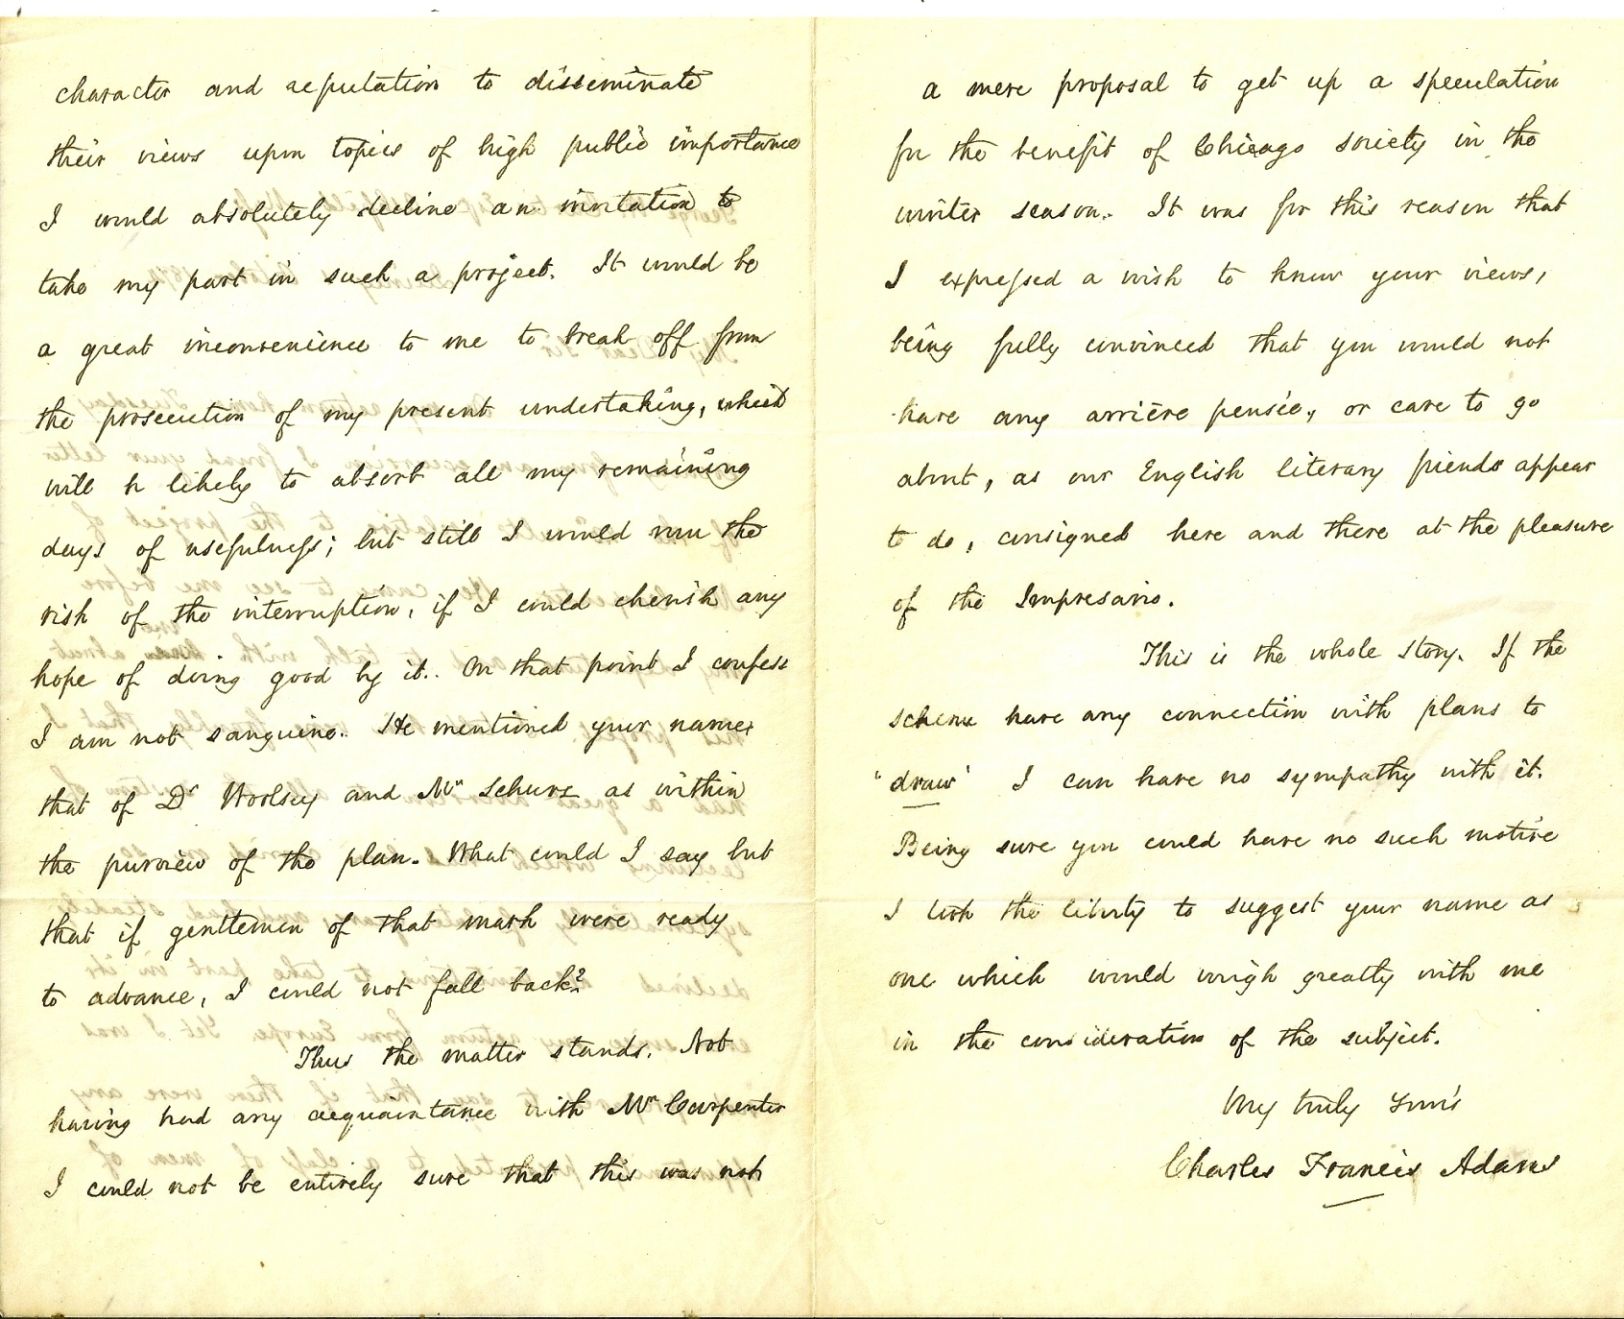 character and reputation to disseminate
their views upon topics of high public importance
I would absolutely decline an invitation to
take my part in such a project. It would be
a great inconvenience to me to break off from
the prosecution of my present undertaking, which
will be likely to absorb all my remaining
days of usefulness; but still I would run the
risk of the interruption, if I could cherish any
hope of doing good by it. On that point I confess
I am not sanguine. He mentioned your name,
that of Dr Woolsey and Mr Schurz as within
the purview of the plan. What could I say but
that if gentlemen of that mark were ready
to advance, I could not fall back?
Thus the matter stands. Not
having had any acquaintance with Mr Carpenter
I could not be entirely sure that this was not
a mere proposal to get up a speculation
for the benefit of Chicago society in the
winter season. It was for this reason that
I expressed a wish to know your views,
being fully convinced that you would not
have any arrière pensée, or care to go
about, as our English literary friends appear
to do, consigned here and there at the pleasure
of the Impresario.
This is the whole story. If the
scheme have any connection with plans to
"draw" I can have no sympathy with it.
Being sure you could have no such motive
I took the liberty to suggest your name as
one which would weigh greatly with me
in the consideration of the subject.
Very truly Your's
Charles Francis Adams